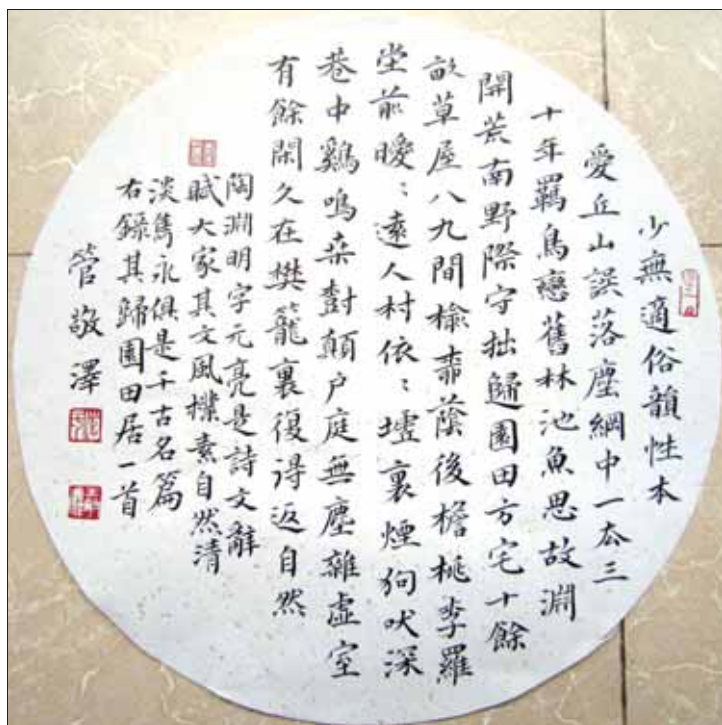 少無適俗韻性本
愛丘山誤落塵網中一去三
十年羈鳥戀舊林池魚思故淵
開荒南野際守拙歸園田方宅十餘
畝草屋八九間榆柳蔭後檐桃李羅
堂前曖：遠人村依：墟裏煙狗吠深
巷中鷄鳴桑樹顛户庭無塵雜虛室
有餘閑久在樊籠裏復得返自然
陶淵明字元亮是詩文辭
賦大家其文風樸素自然清
淡雋永俱是千古名篇
右錄其歸園田居一首
管敬澤